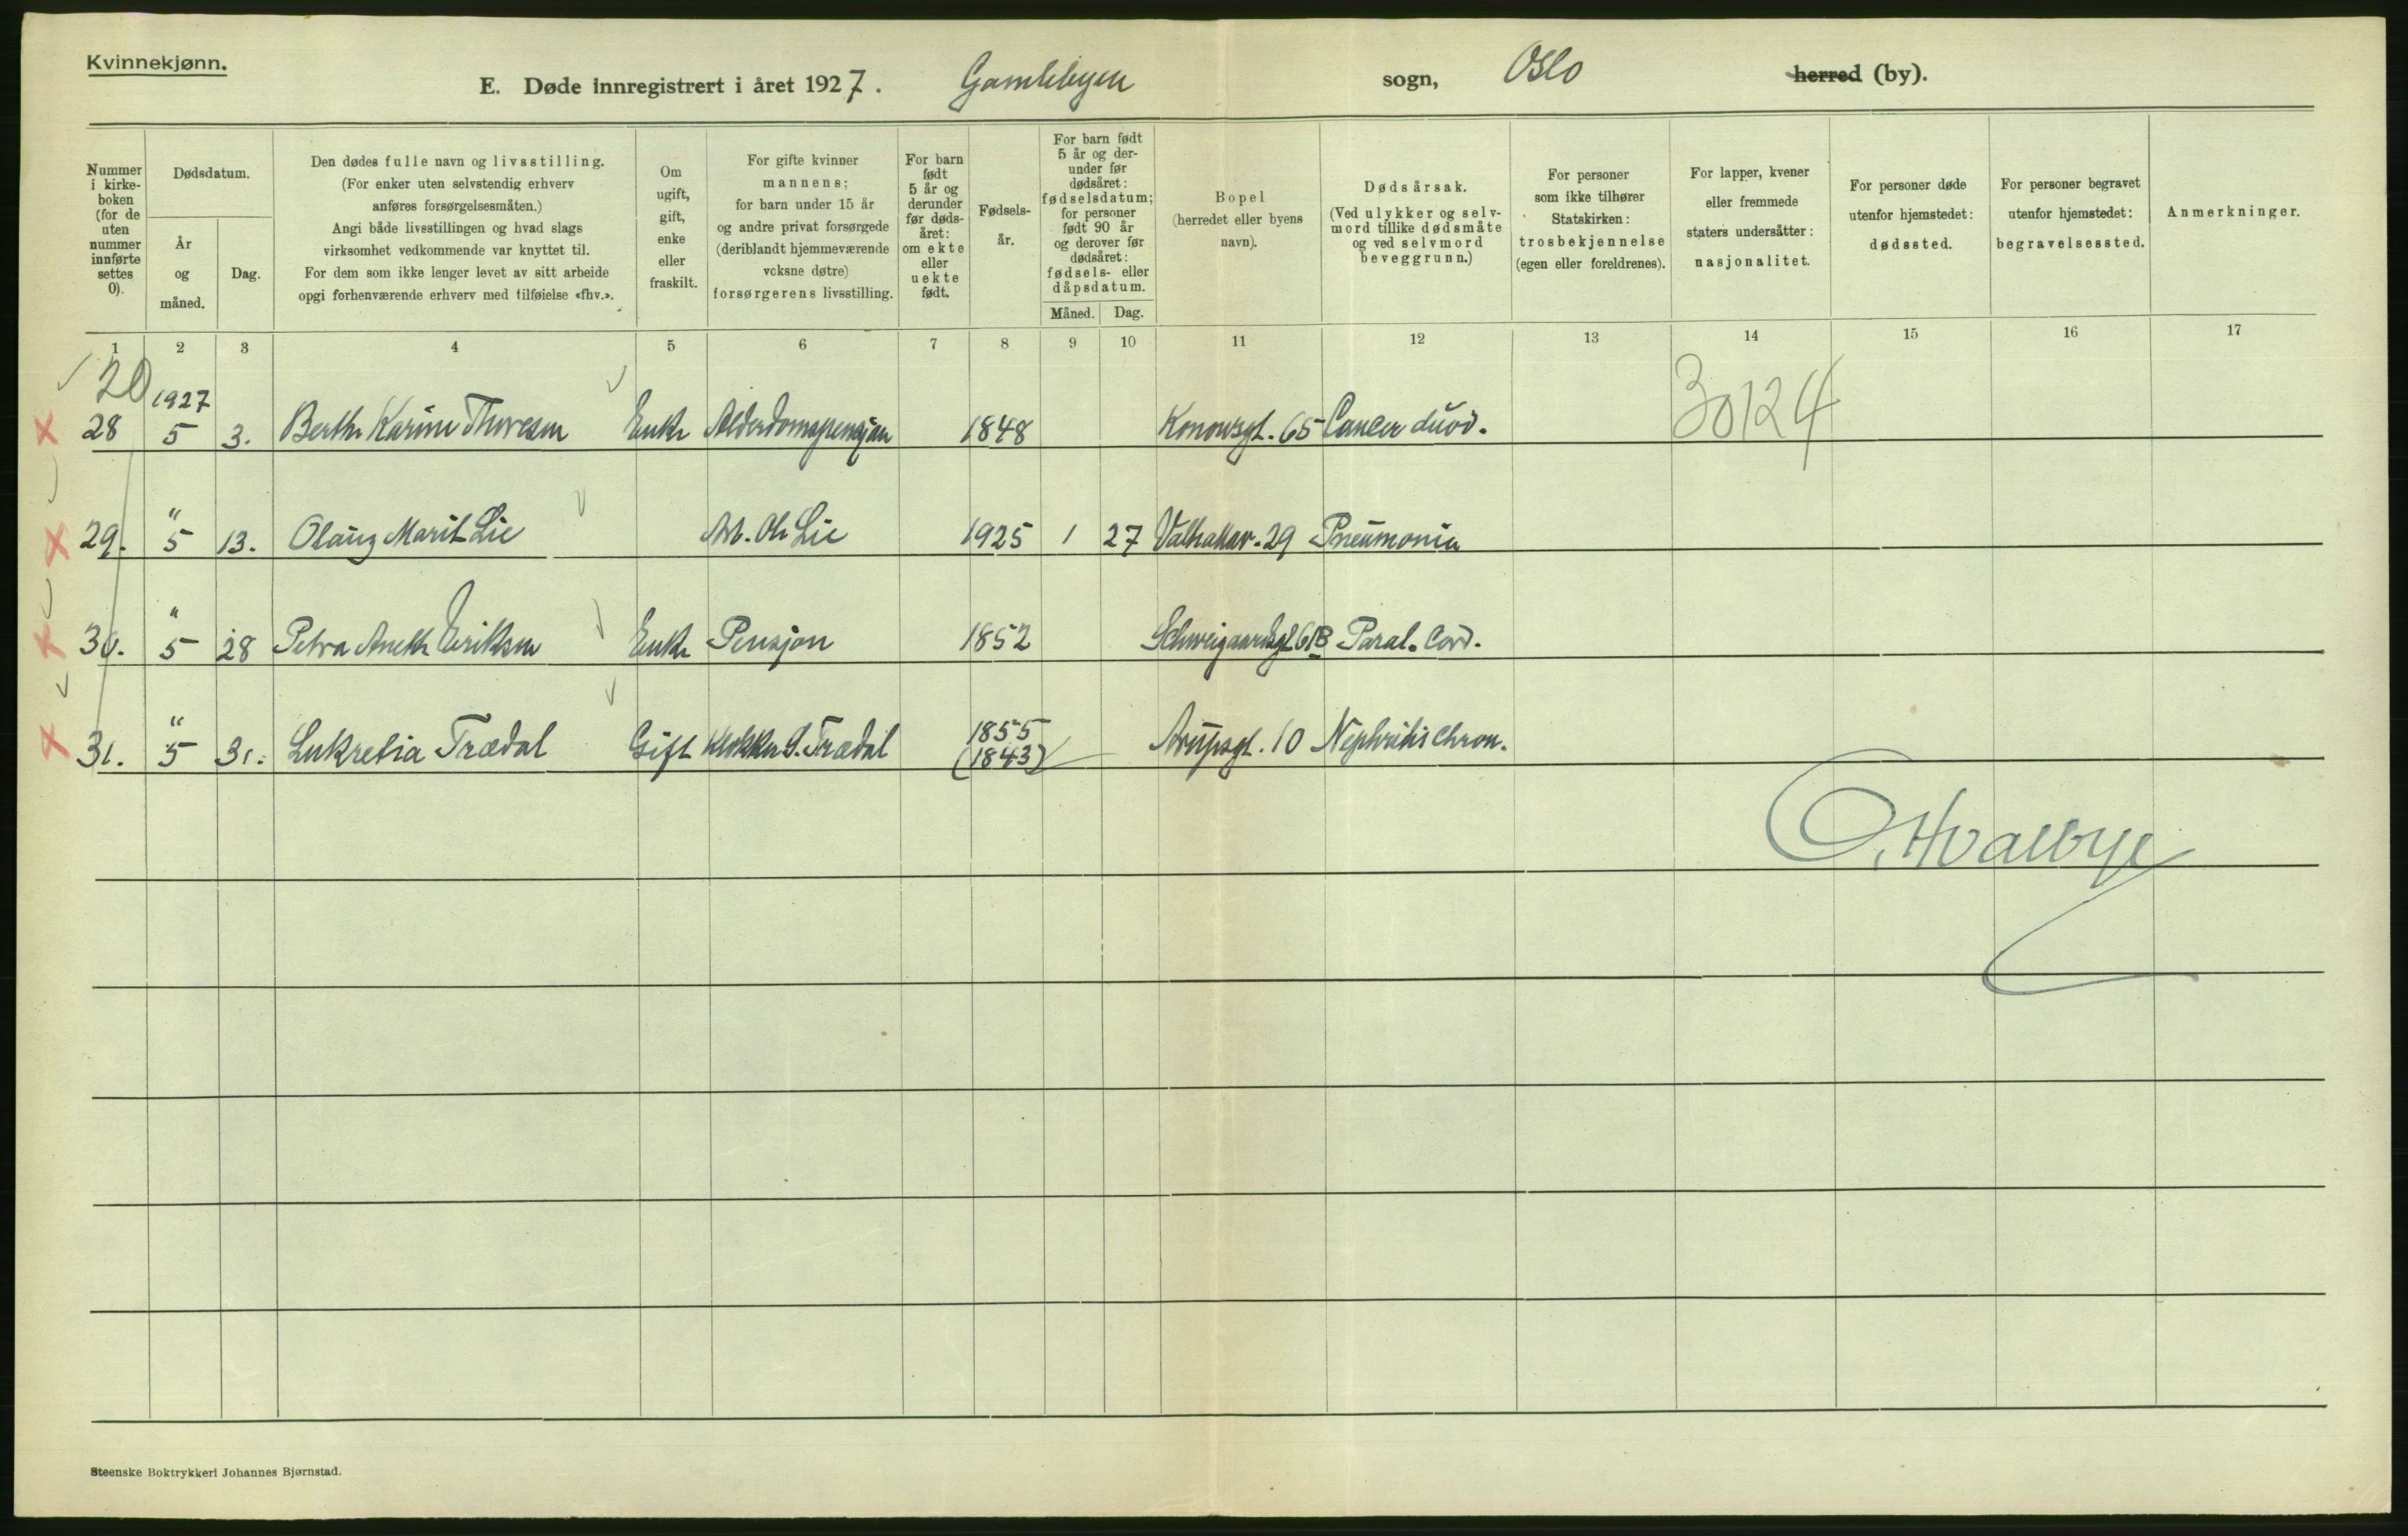 Kvinnekjønn.
E. Døde innregistrert i året 1927. Gamlebyen sogn, Oslo herred (by).
Nummer i kirke-boken (for de uten nummer innførte settes 0).
Dødsdatum.
År og måned.
Dag.
Den dødes fulle navn og livsstilling.
(For enker uten selvstendig erhverv
anføres forsørgelsesmåten.)
Angi både livsstillingen og hvad slags
virksomhet vedkommende var knyttet til.
For dem som ikke lenger levet av sitt arbeide
opgi forhenværende erhverv med tilføielse «fhv.».
Om ugift, gift, enke eller fraskilt.
For gifte kvinner
mannens;
for barn under 15 år
og andre privat forsørgede
(deriblandt hjemmeværende
voksne døtre)
forsørgerens livsstilling.
For barn født 5 år og derunder før døds-året: om ekte eller uekte født.
Fødsels-år.
For barn født
5 år og der-
under før
dødsåret:
fødselsdatum;
for personer
født 90 år
og derover før
dødsåret:
fødsels- eller
dåpsdatum.
Måned. Dag.
Bopel
(herredet eller byens
navn).
Dødsårsak.
(Ved ulykker og selv-
mord tillike dødsmåte
og ved selvmord
beveggrunn.)
For personer
som ikke tilhører
Statskirken:
trosbekjennelse
(egen eller foreldrenes).
For lapper, kvener
eller fremmede
staters undersåtter:
nasjonalitet.
For personer døde
utenfor hjemstedet:
dødssted.
For personer begravet
utenfor hjemstedet:
begravelsessted.
Anmerkninger.
1 2 3 4 5 6 7 8 9 10 11 12 13 14 15 16 17
20 1927 30124
28 5 3. Berthe Karine Thoresen Enke Alderdomspensjon 1848 Konowsgt. 65 Cancer duod.
29. " 5 13. Olaug Marit Lie Arb. Ole Lie 1925 1 27 Valhallav. 29 Pneumonia
30. " 5 28 Petra Anethe Eriksen Enke Pensjon 1852 Schweigaardsgt 61B Paral. Cord.
31. " 5 31. Lukretia Trædal Gift Klokker S. Trædal 1855 (1843) Arupsgt. 10 Nephritis Chron.
O. Hvalbye
Steenske Boktrykkeri Johannes Bjørnstad.